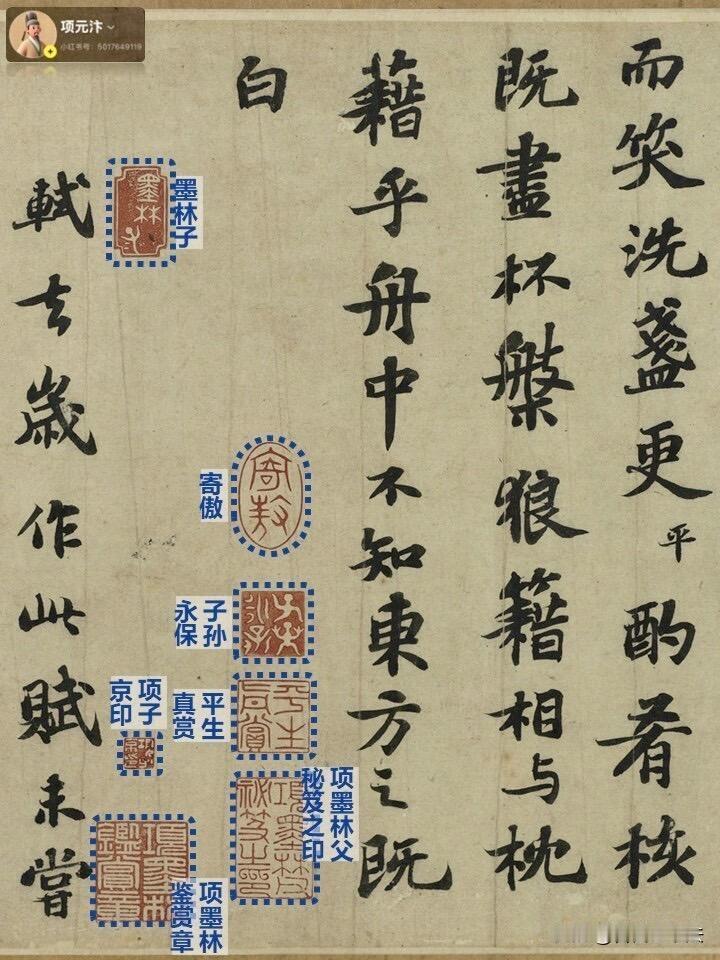 项元汴
小红书号：5017649119
而笑洗盞更平酌肴核
既盡杯槃狼籍相与枕
藉乎舟中不知東方之既
白
軾去歲作此賦未嘗
墨林子
寄傲
子孙
永保
平生
真赏
项子
京印
项墨林父
秘笈之印
项墨林
鉴赏章